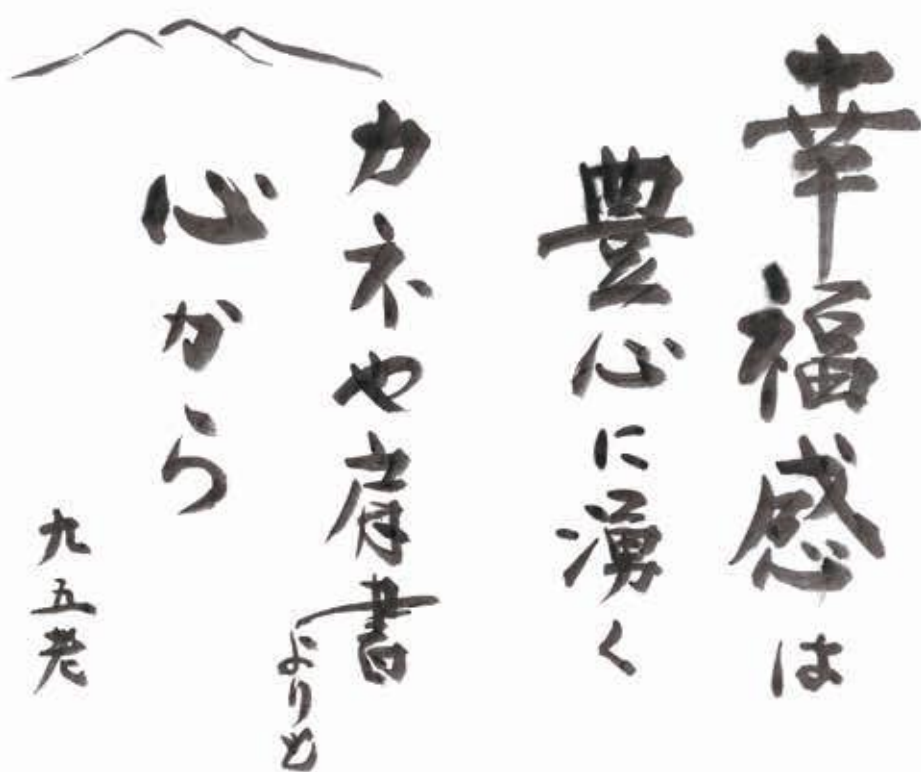 幸福感は
豊心に湧く
カネや肩書
よりも
心から
九五老